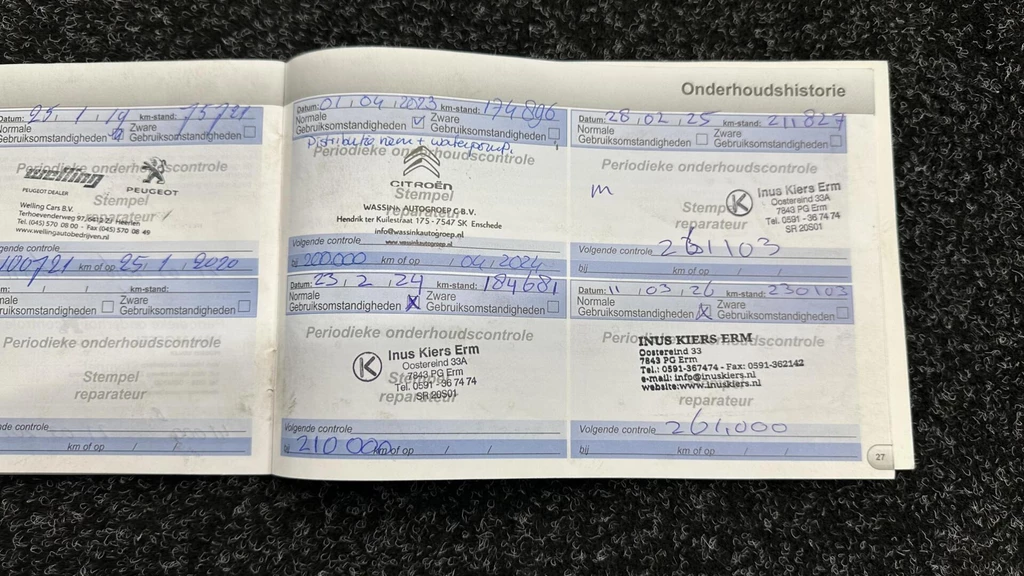 Onderhoudshistorie
Datum: 25, 1, 19 km-stand: 75721
Normale
Gebruiksomstandigheden
Zware
Gebruiksomstandigheden
Periodieke onderhoudscontrole
welling
PEUGEOT DEALER
PEUGEOT
Stempel
reparateur
Welling Cars B.V.
Terhoevenderweg 97, Heerlen
Tel. (045) 570 08 00 - Fax (045) 570 08 49
www.wellingautobedrijven.nl
gende controle
100721 km of op 25, 1, 2020
km-stand:
male
ruiksomstandigheden
Zware
Gebruiksomstandigheden
Periodieke onderhoudscontrole
Stempel
reparateur
nde controle
km of op / /
Datum: 01, 04, 2023 km-stand: 174896
Normale
Gebruiksomstandigheden
Zware
Gebruiksomstandigheden
Distributie riem + waterpomp.
Periodieke onderhoudscontrole
CITROËN
Stempel
reparateur
WASSINK AUTOGROEP B.V.
Hendrik ter Kuilestraat 175 - 7547 SK Enschede
info@wassinkautogroep.nl
www.wassinkautogroep.nl
Volgende controle
bij 200.000 km of op / 04, 2024
Datum: 23, 2, 24 km-stand: 184681
Normale
Gebruiksomstandigheden
Zware
Gebruiksomstandigheden
Periodieke onderhoudscontrole
K
Inus Kiers Erm
Oostereind 33A
7843 PG Erm
Tel. 0591 - 36 74 74
SR 20S01
Stempel
reparateur
Volgende controle
bij 210000 km of op / /
Datum: 28, 02, 25 km-stand: 211827
Normale
Gebruiksomstandigheden
Zware
Gebruiksomstandigheden
Periodieke onderhoudscontrole
m
Stempel
reparateur
K
Inus Kiers Erm
Oostereind 33A
7843 PG Erm
Tel. 0591 - 36 74 74
SR 20S01
Volgende controle
bij km of op / /
Datum: 11, 03, 26 km-stand: 230103
Normale
Gebruiksomstandigheden
Zware
Gebruiksomstandigheden
Periodieke onderhoudscontrole
INUS KIERS ERM
Oostereind 33
7843 PG Erm
Tel.: 0591-367474 - Fax: 0591-362142
e-mail: info@inuskiers.nl
website:www.inuskiers.nl
reparateur
Volgende controle 261,000
bij km of op / /
27